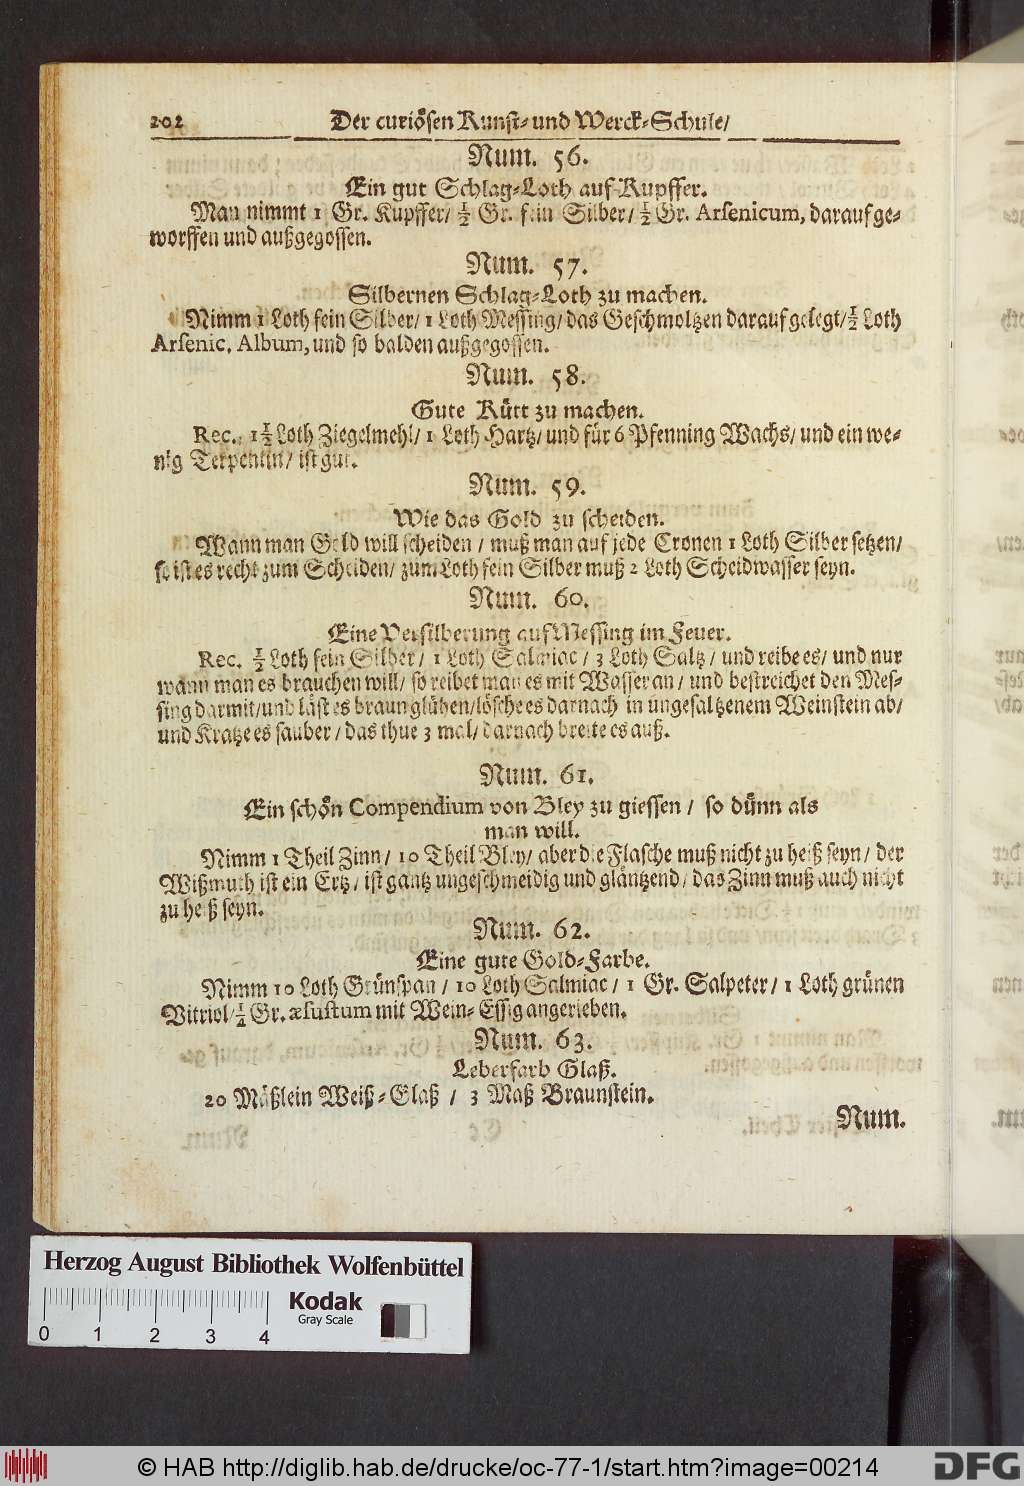 202 Der curiösen Kunst- und Werck-Schule/
Num. 56.
Ein gut Schlag-Loth auf Kupffer.
Man nimmt 1 Gr. Kupffer/ ½ Gr. fein Silber/ ½ Gr. Arsenicum, darauf ge-
worffen und außgegossen.
Num. 57.
Silbernen Schlag-Loth zu machen.
Nimm 1 Loth fein Silber/ 1 Loth Messing/ das Geschmoltzen darauf gelegt/ ½ Loth
Arsenic. Album, und so balden außgegossen.
Num. 58.
Gute Kütt zu machen.
Rec. 1½ Loth Ziegelmehl/ 1 Loth Hartz/ und für 6 Pfenning Wachs/ und ein we-
nig Terpentin/ ist gut.
Num. 59.
Wie das Gold zu scheiden.
Wann man Gold will scheiden / muß man auf jede Cronen 1 Loth Silber setzen/
so ist es recht zum Scheiden/ zum Loth fein Silber muß 2 Loth Scheidwasser seyn.
Num. 60.
Eine Versilberung auf Messing im Feuer.
Rec. ½ Loth fein Silber/ 1 Loth Salmiac / 3 Loth Saltz / und reibe es/ und nur
wann man es brauchen will/ so reibet man es mit Wasser an / und bestreichet den Mes-
sing darmit/ und läst es braun glühen/ lösche es darnach in ungesaltzenem Weinstein ab/
und Kratze es sauber / das thue 3 mal/ darnach breite es auß.
Num. 61.
Ein schön Compendium von Bley zu giessen / so dünn als
man will.
Nimm 1 Theil Zinn / 10 Theil Bley/ aber die Flasche muß nicht zu heiß seyn / der
Wißmuth ist ein Ertz / ist gantz ungeschmeidig und gläntzend / das Zinn muß auch nicht
zu heiß seyn.
Num. 62.
Eine gute Gold-Farbe.
Nimm 10 Loth Grünspan / 10 Loth Salmiac / 1 Gr. Salpeter / 1 Loth grünen
Vitriol/ ½ Gr. æsustum mit Wein-Essig angerieben.
Num. 63.
Leberfarb Glaß.
20 Mäßlein Weiß-Glaß / 3 Maß Braunstein.
Num.
Herzog August Bibliothek Wolfenbüttel
Kodak
Gray Scale
0 1 2 3 4
© HAB http://diglib.hab.de/drucke/oc-77-1/start.htm?image=00214
DFG